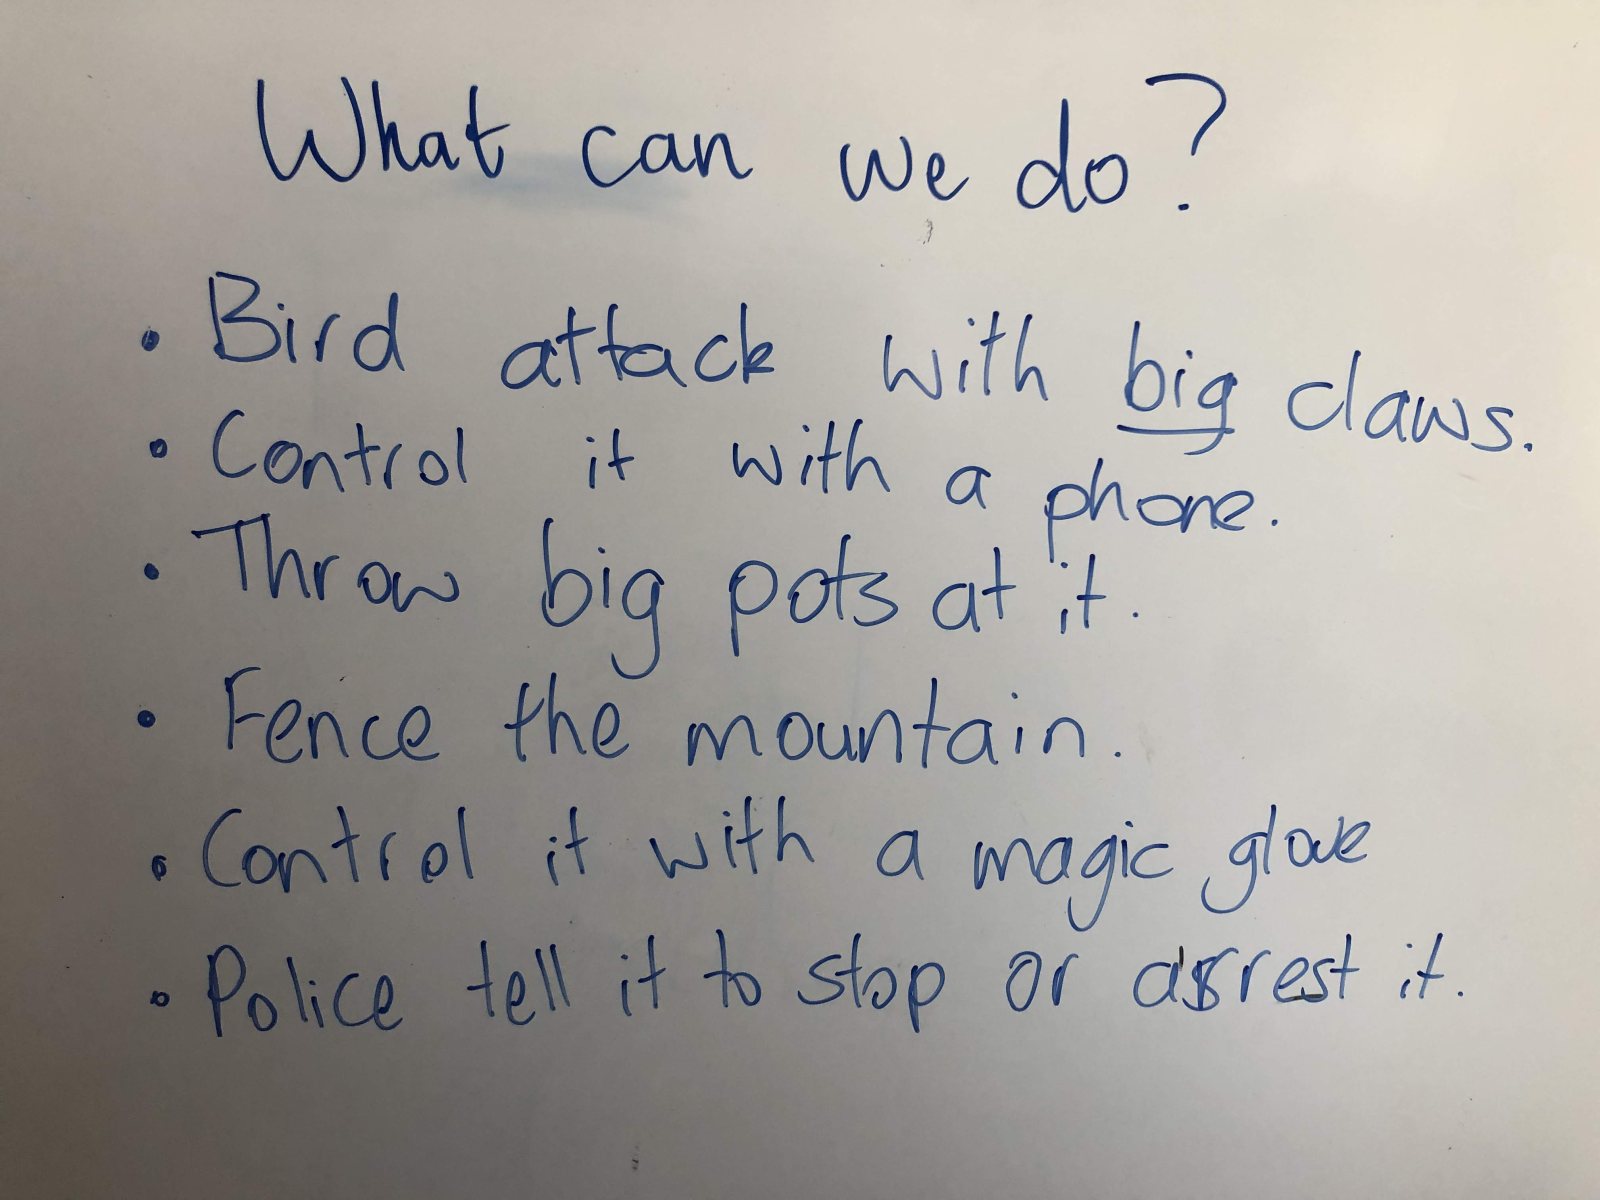 What can we do?
• Bird attack with big claws.
• Control it with a phone.
• Throw big pots at it.
• Fence the mountain.
• Control it with a magic glove
• Police tell it to stop or arrest it.